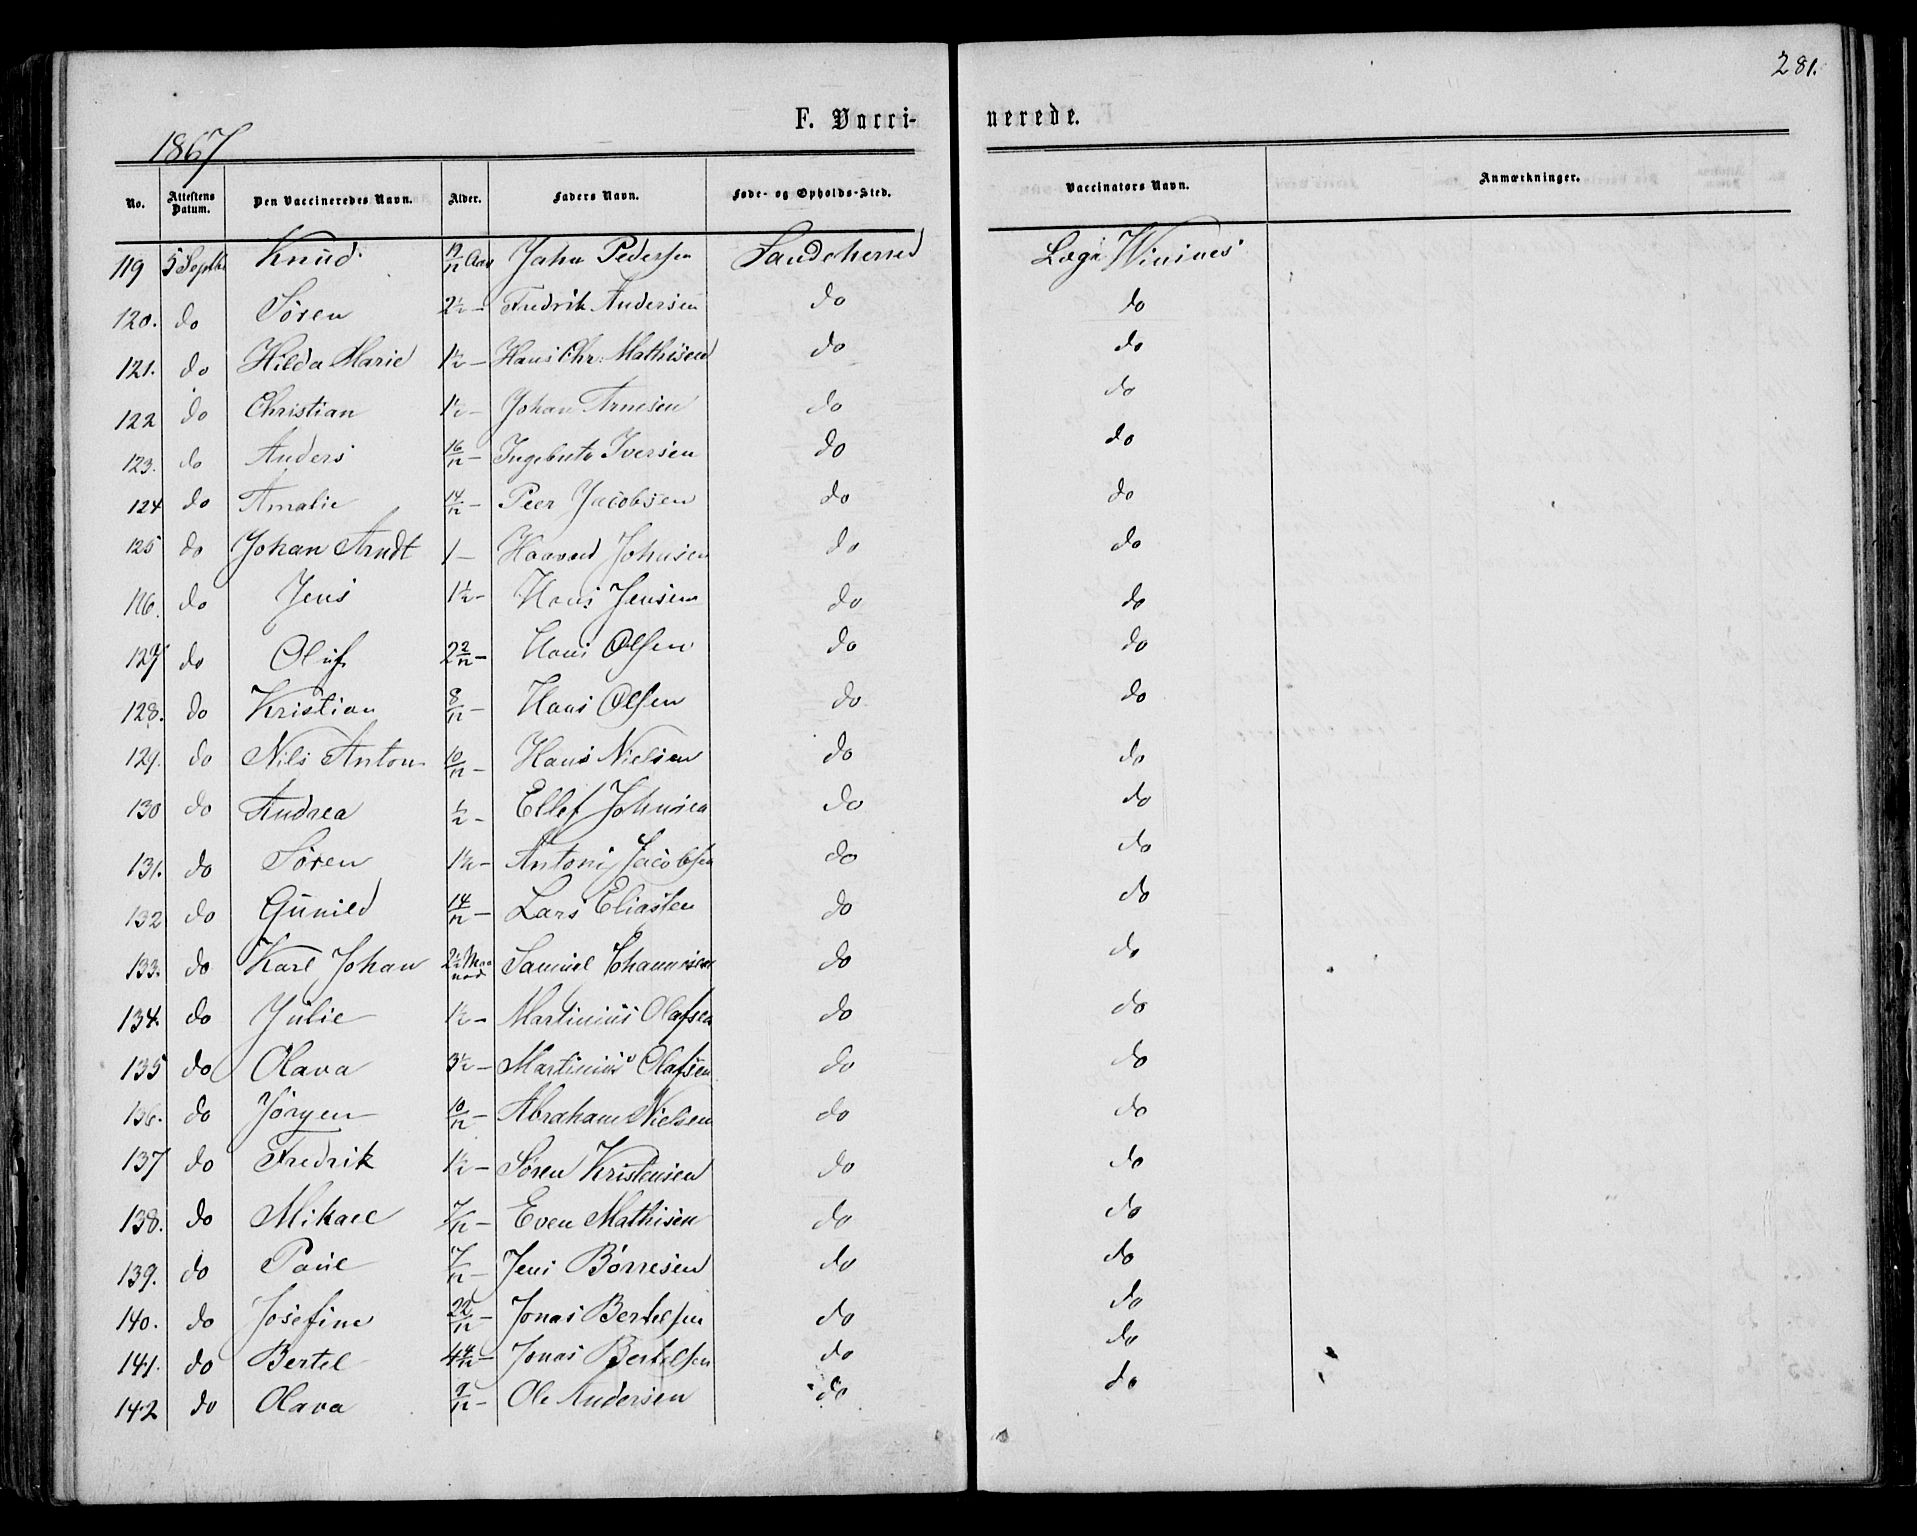 281.
F. Vacci- nerede.
1867
No. Attestens Datum. Den Vaccineredes Navn. Alder. Faders Navn. Føde- og Opholds-Sted. Vaccinators Navn. Anmærkninger.
119 5 Septbr Knud 12/12 Aar Jahn Pedersen Sandeherred Læge
120. do Søren 2½ — Fredrik Andersen do do
121. do Hilda Marie 1½ — Hans Chr. Mathisen do do
122 do Christian 1½ — Johan Arnesen do do
123. do Anders 16/12 — Ingebret Iversen do do
124 do Amalie 14/12 — Peer Jacobsen do do
125 do Johan Arndt 1 — Haavard Johnsen do do
116. do Jens 1½ - Hans Jensen do do
127 do Oluf 2 2/12 — Hans Olsen do do
128. do Kristian 8/12 — Hans Olsen do do
129. do Nils Anton 10/12 — Hans Nielsen do do
130 do Andrea ½ — Ellef Johnsen do do
131. do Søren 1½ — Antoni Jacobsen do do
132 do Gunild 14/12 — Lars Eliassen do do
133. do Karl Johan 2½ Maanad Samuel Johannesen do do
134. do Julie 1½ — Martinius Olafsen do do
135 do Olava 3½ — Martinius Olafsen do do
136. do Jørgen 10/12 — Abraham Nielsen do do
137 do Fredrik 1½ — Søren Kristensen do do
138. do Mikael 7/12 — Even Mathisen do do
139. do Paul 7/12 — Jens Børresen do do
140. do Josefine 22/12 — Jonas Bertelsen do do
141. do Bertel 4 4/12 — Jonas Bertelsen do do
142 do Olava 9/12 — Ole Andersen do do